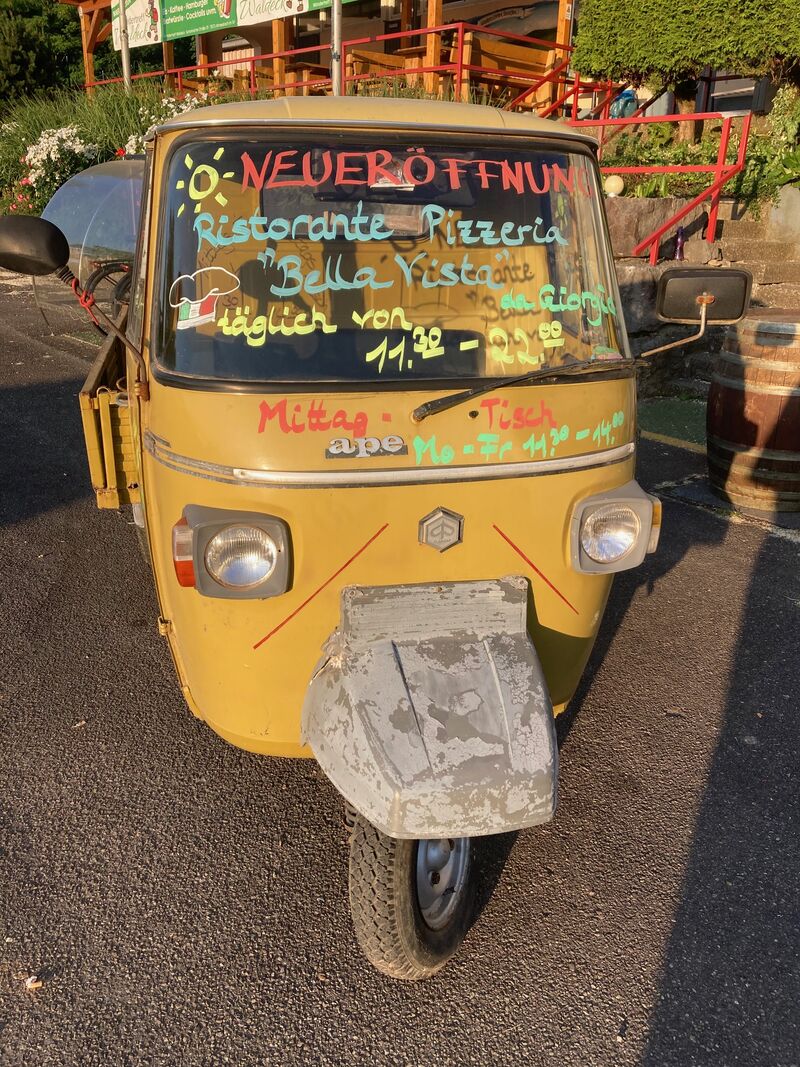 Kaffee - Hamburger
Bratwürste - Cocktails uvm.
NEUERÖFFNUNG
Ristorante Pizzeria
"Bella Vista"
da Giorgio
täglich von
11.30 - 22.00
Mittag - Tisch
ape
Mo - Fr 11.30 - 14.00